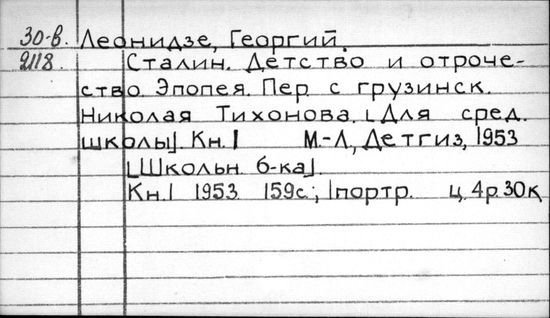 30-в. Леонидзе, Георгий.
2118. Сталин. Детство и отроче-
ство. Эпопея. Пер с грузинск.
Николая Тихонова. [Для сред.
школы]. Кн. I М.-Л, Детгиз, 1953
[Школьн. б-ка].
Кн. I 1953 159с.; 1портр. ц. 4р.30к